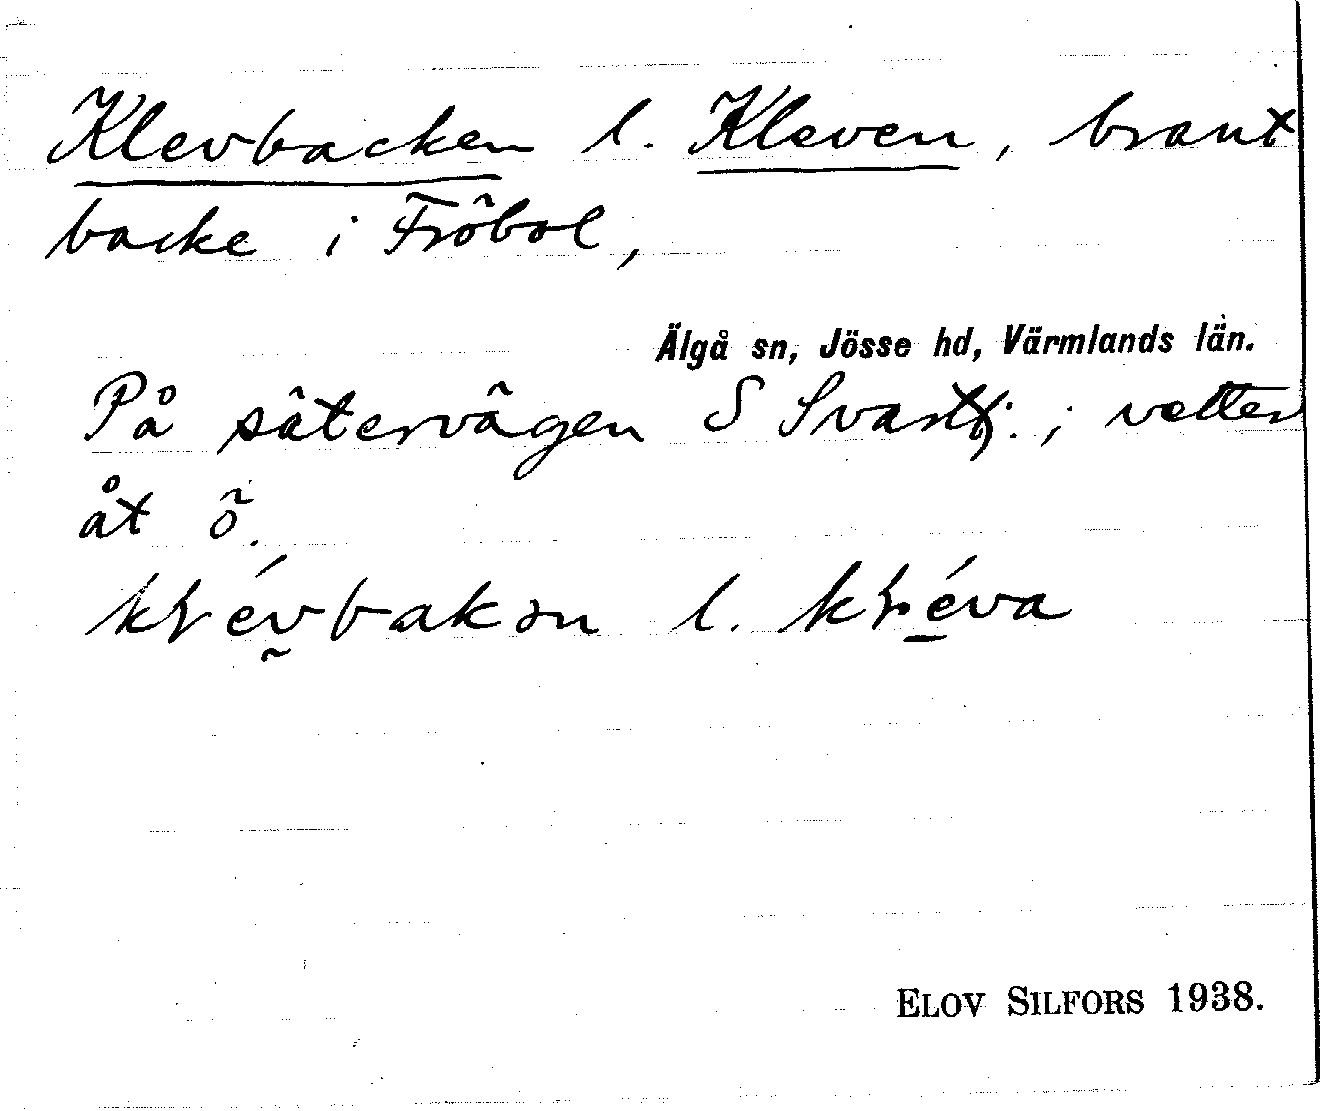 Klevbacken l. Kleven, brant
backe i Fröbol,
Älgå sn, Jösse hd, Värmlands län.
På sätervägen S Svarttj:; vetter
åt ö.
kḷévbakən l. kḷéva
ELOV SILFORS 1938.